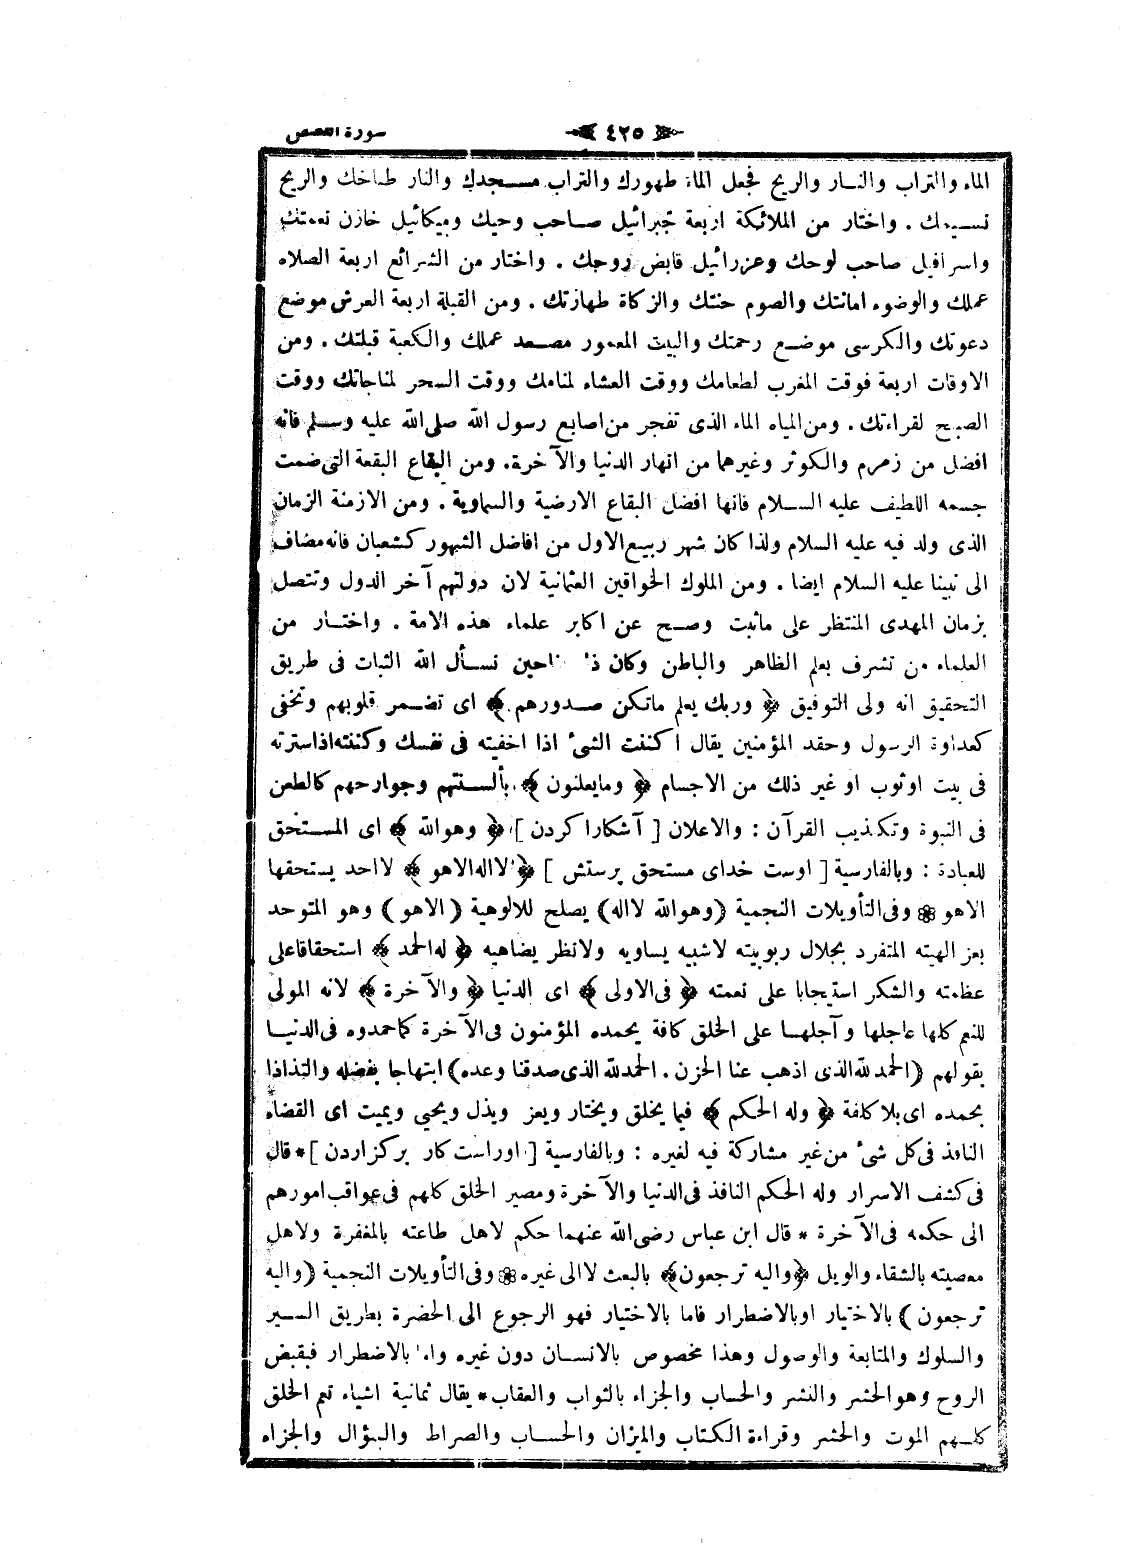 سورة القصص
٤٢٥
الماء والتراب والنار والريح فجعل الماء طهورك والتراب مسجدك والنار طباخك والريح
نسيمك . واختار من الملائكة اربعة جبرائيل صاحب وحيك وميكائيل خازن نعمتك
واسرافيل صاحب لوحك وعزرائيل قابض روحك . واختار من الشرائع اربعة الصلاه
عملك والوضوء امانتك والصوم جنتك والزكاة طهارتك . ومن القبلة اربعة العرش موضع
دعوتك والكرسى موضع رحمتك والبيت المعمور مصعد عملك والكعبة قبلتك . ومن
الاوقات اربعة فوقت المغرب لطعامك ووقت العشاء لمنامك ووقت السحر لمناجاتك ووقت
الصبح لقراءتك . ومن المياه الماء الذى تفجر من اصابع رسول الله صلى الله عليه وسلم فانه
افضل من زمزم والكوثر وغيرهما من انهار الدنيا والآخرة. ومن البقاع البقعة التى ضمت
جسمه اللطيف عليه السلام فانها افضل البقاع الارضية والسماوية . ومن الازمنة الزمان
الذى ولد فيه عليه السلام ولذا كان شهر ربيع الاول من افاضل الشهور كشعبان فانه مضاف
الى نبينا عليه السلام ايضا . ومن الملوك الخواقين العثمانية لان دولتهم آخر الدول وتتصل
بزمان المهدى المنتظر على ماثبت وصح عن اكابر علماء هذه الامة . واختار من
العلماء من تشرف بعلم الظاهر والباطن وكان ذا جناحين نسأل الله الثبات فى طريق
التحقيق انه ولى التوفيق ﴿ وربك يعلم ماتكن صدورهم ﴾ اى تضمر قلوبهم وتخفى
كعداوة الرسول وحقد المؤمنين يقال اكننت الشئ اذا اخفيته فى نفسك وكننته اذا سترته
فى بيت او ثوب او غير ذلك من الاجسام ﴿ وما يعلنون ﴾ بألسنتهم وجوارحهم كالطعن
فى النبوة وتكذيب القرآن : والاعلان [ آشكارا كردن ] ﴿ وهو الله ﴾ اى المستحق
للعبادة : وبالفارسية [ اوست خداى مستحق پرستش ] ﴿ لا اله الا هو ﴾ لا احد يستحقها
الا هو ۞ وفى التأويلات النجمية (وهو الله لا اله) يصلح للالوهية (الا هو) وهو المتوحد
بعز الهيته المتفرد بجلال ربوبيته لاشبيه يساويه ولانظر يضاهيه ﴿ له الحمد ﴾ استحقاقا على
عظمته والشكر استيجابا على نعمته ﴿ فى الاولى ﴾ اى الدنيا ﴿ والآخرة ﴾ لانه المولى
للنعم كلها عاجلها وآجلها على الخلق كافة يحمده المؤمنون فى الآخرة كما حمدوه فى الدنيا
بقولهم (الحمد لله الذى اذهب عنا الحزن . الحمد لله الذى صدقنا وعده) ابتهاجا بفضله والتذاذا
بحمده اى بلا كلفة ﴿ وله الحكم ﴾ فيما يخلق ويختار ويعز ويذل ويحيى ويميت اى القضاء
النافذ فى كل شئ من غير مشاركة فيه لغيره : وبالفارسية [ اوراست كار بركزاردن ] * قال
فى كشف الاسرار وله الحكم النافذ فى الدنيا والآخرة ومصير الخلق كلهم فى عواقب امورهم
الى حكمه فى الآخرة * قال ابن عباس رضى الله عنهما حكم لاهل طاعته بالمغفرة ولاهل
معصيته بالشقاء والويل ﴿ واليه ترجعون ﴾ بالبعث لا الى غيره ۞ وفى التأويلات النجمية (واليه
ترجعون) بالاختيار او بالاضطرار فاما بالاختيار فهو الرجوع الى الحضرة بطريق السير
والسلوك والمتابعة والوصول وهذا مخصوص بالانسان دون غيره واما بالاضطرار فبقبض
الروح وهو الحشر والنشر والحساب والجزاء بالثواب والعقاب * يقال ثمانية اشياء تعم الخلق
كلهم الموت والحشر وقراءة الكتاب والميزان والحساب والصراط والسؤال والجزاء